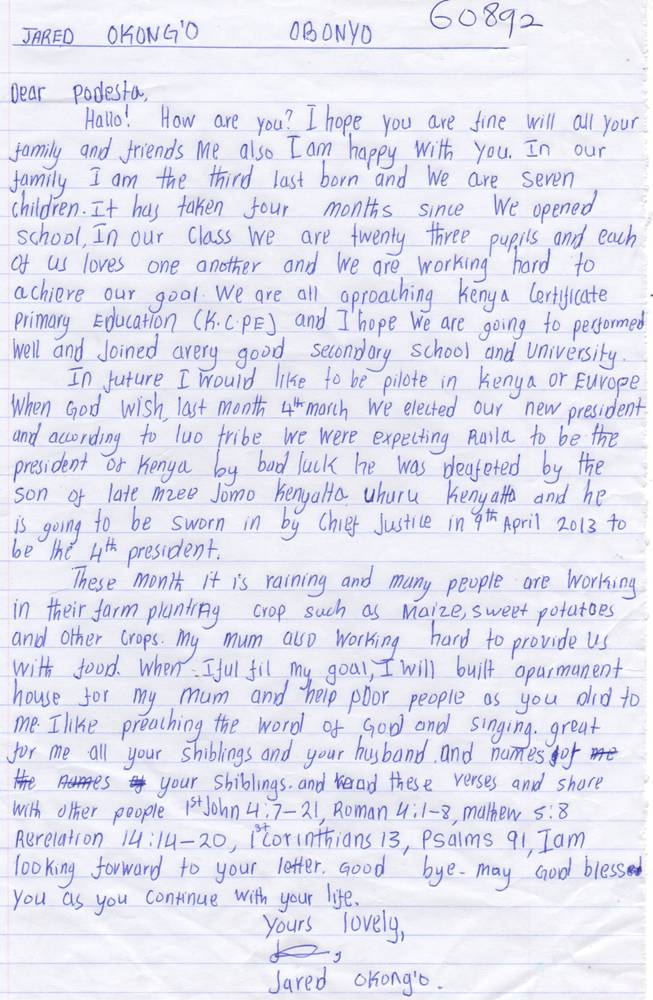 60892
JARED OKONG'O OBONYO
Dear Podesta,
Hallo! How are you? I hope you are fine will all your
family and friends Me also I am happy with you. In our
family I am the third last born and We are seven
children. It has taken four months since We opened
school, In our Class We are twenty three pupils and each
of us loves one another and We are Working hard to
achieve our goal. We are all aproaching Kenya Certificate
Primary Education (K.C.PE) and I hope We are going to performed
Well and Joined avery good secondary school and University.
In future I would like to be pilote in Kenya or Europe
When God Wish, last month 4th march We elected our new president
and according to luo tribe We were expecting Raila to be the
president of Kenya by bad luck he was deafeted by the
son of late mzee Jomo Kenyatta uhuru Kenyatta and he
is going to be sworn in by Chief Justice in 9th April 2013 to
be the 4th president.
These month it is raining and many people are Working
in their farm planting crop such as Maize, sweet potatoes
and other crops. My mum also Working hard to provide us
With food. When I ful fil my goal, I will built apurmanent
house for my mum and help poor people as you did to
me. I like preaching the word of God and singing. great
for me all your shiblings and your husband. and names of me
the names of your shiblings. and read these verses and share
With other people 1st John 4:7-21, Roman 4:1-8, mathew 5:8
Rerelation 14:14-20, 1st Corinthians 13, Psalms 91, I am
looking forward to your letter. Good bye- may God bless
You as you continue with your life.
Yours lovely,
Jared Okong'o.